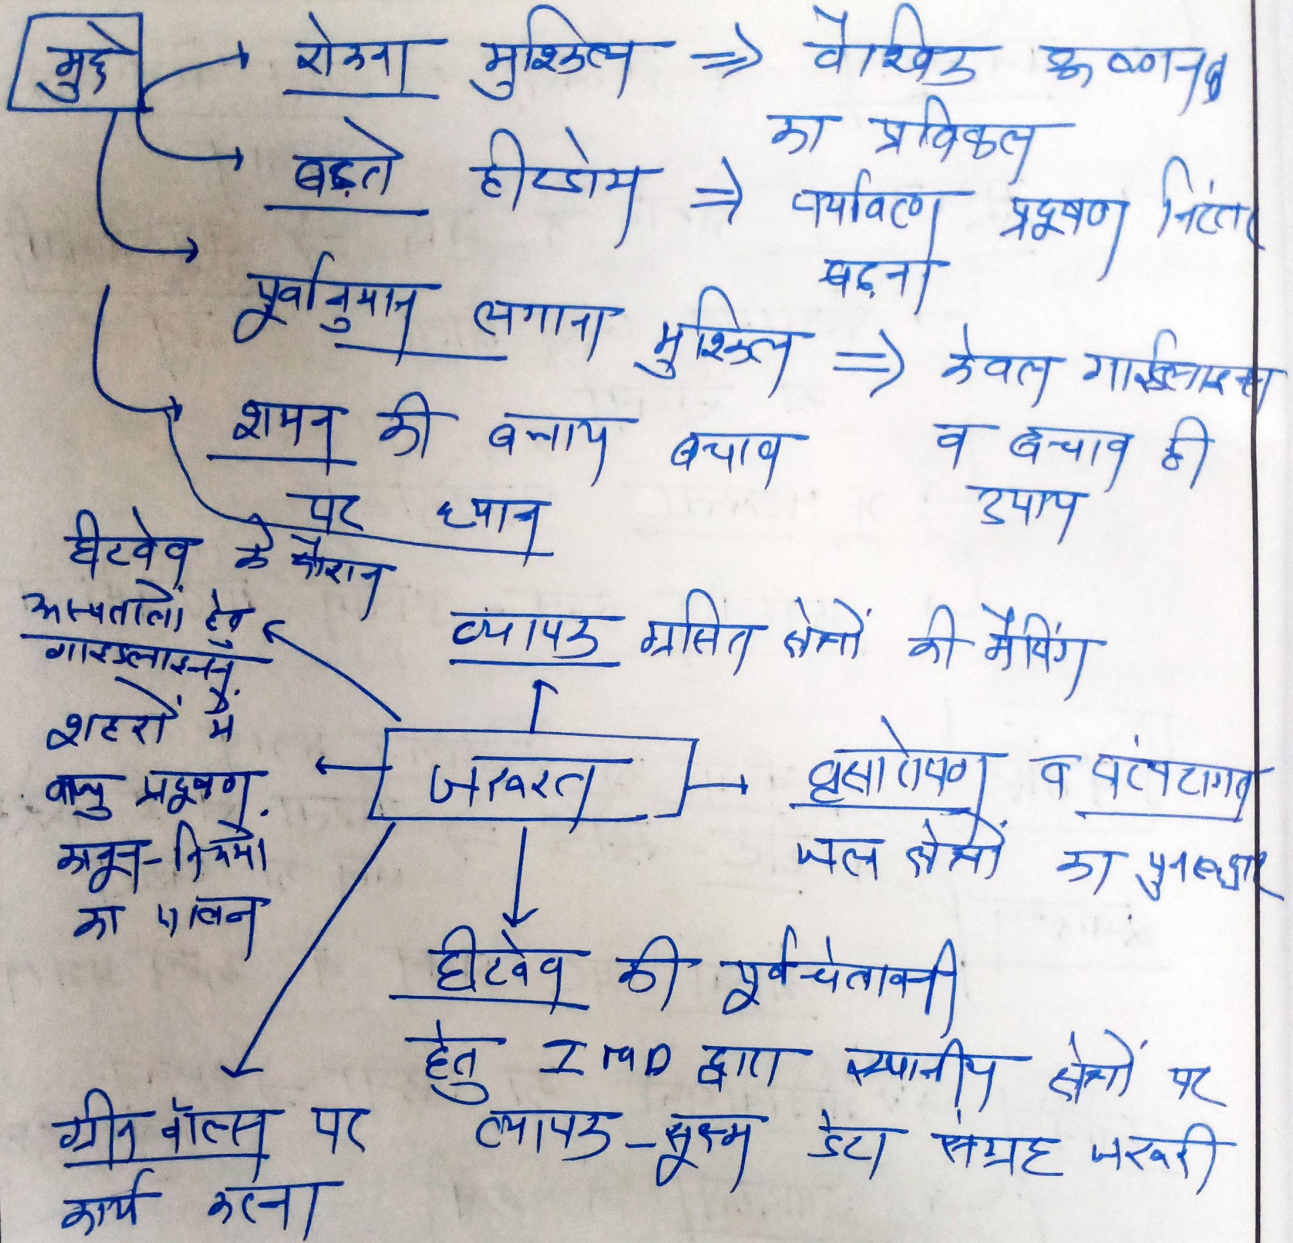 मुद्दे
रोकना मुश्किल ⇒ वैश्विक ऊष्णन
का प्रतिफल
बढ़ते हीटडोम ⇒ पर्यावरण प्रदूषण निरंतर
बढ़ना
पूर्वानुमान लगाना मुश्किल ⇒ केवल गाईडलाइन्स
व बचाव ही
उपाय
शमन की बजाय बचाव
पर ध्यान
हीटवेव के दौरान
अस्पतालों हेतु
गाइडलाइन्स
व्यापक ग्रसित क्षेत्रों की मैपिंग
जरूरत
शहरों में
वायु प्रदूषण
कानून-नियमों
का पालन
वृक्षारोपण व परंपरागत
जल क्षेत्रों का पुनरुद्धार
हीटवेव की पूर्वचेतावनी
हेतु IMD द्वारा स्थानीय क्षेत्रों पर
व्यापक-सूक्ष्म डेटा संग्रह जरूरी
ग्रीन वॉल्स पर
कार्य करना